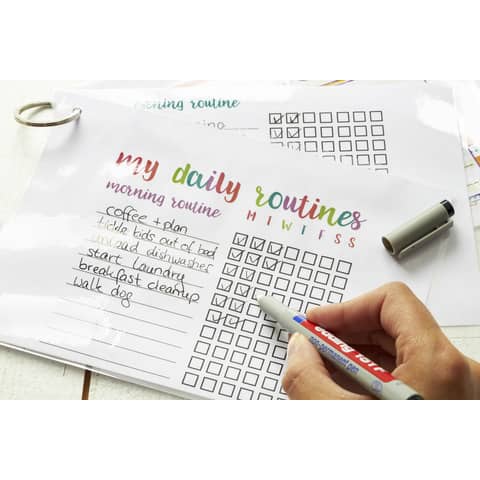 evening routine
my daily routines
morning routine
M T W T F S S
coffee + plan
tickle kids out of bed
unload dishwasher
start laundry
breakfast cleanup
walk dog
edding